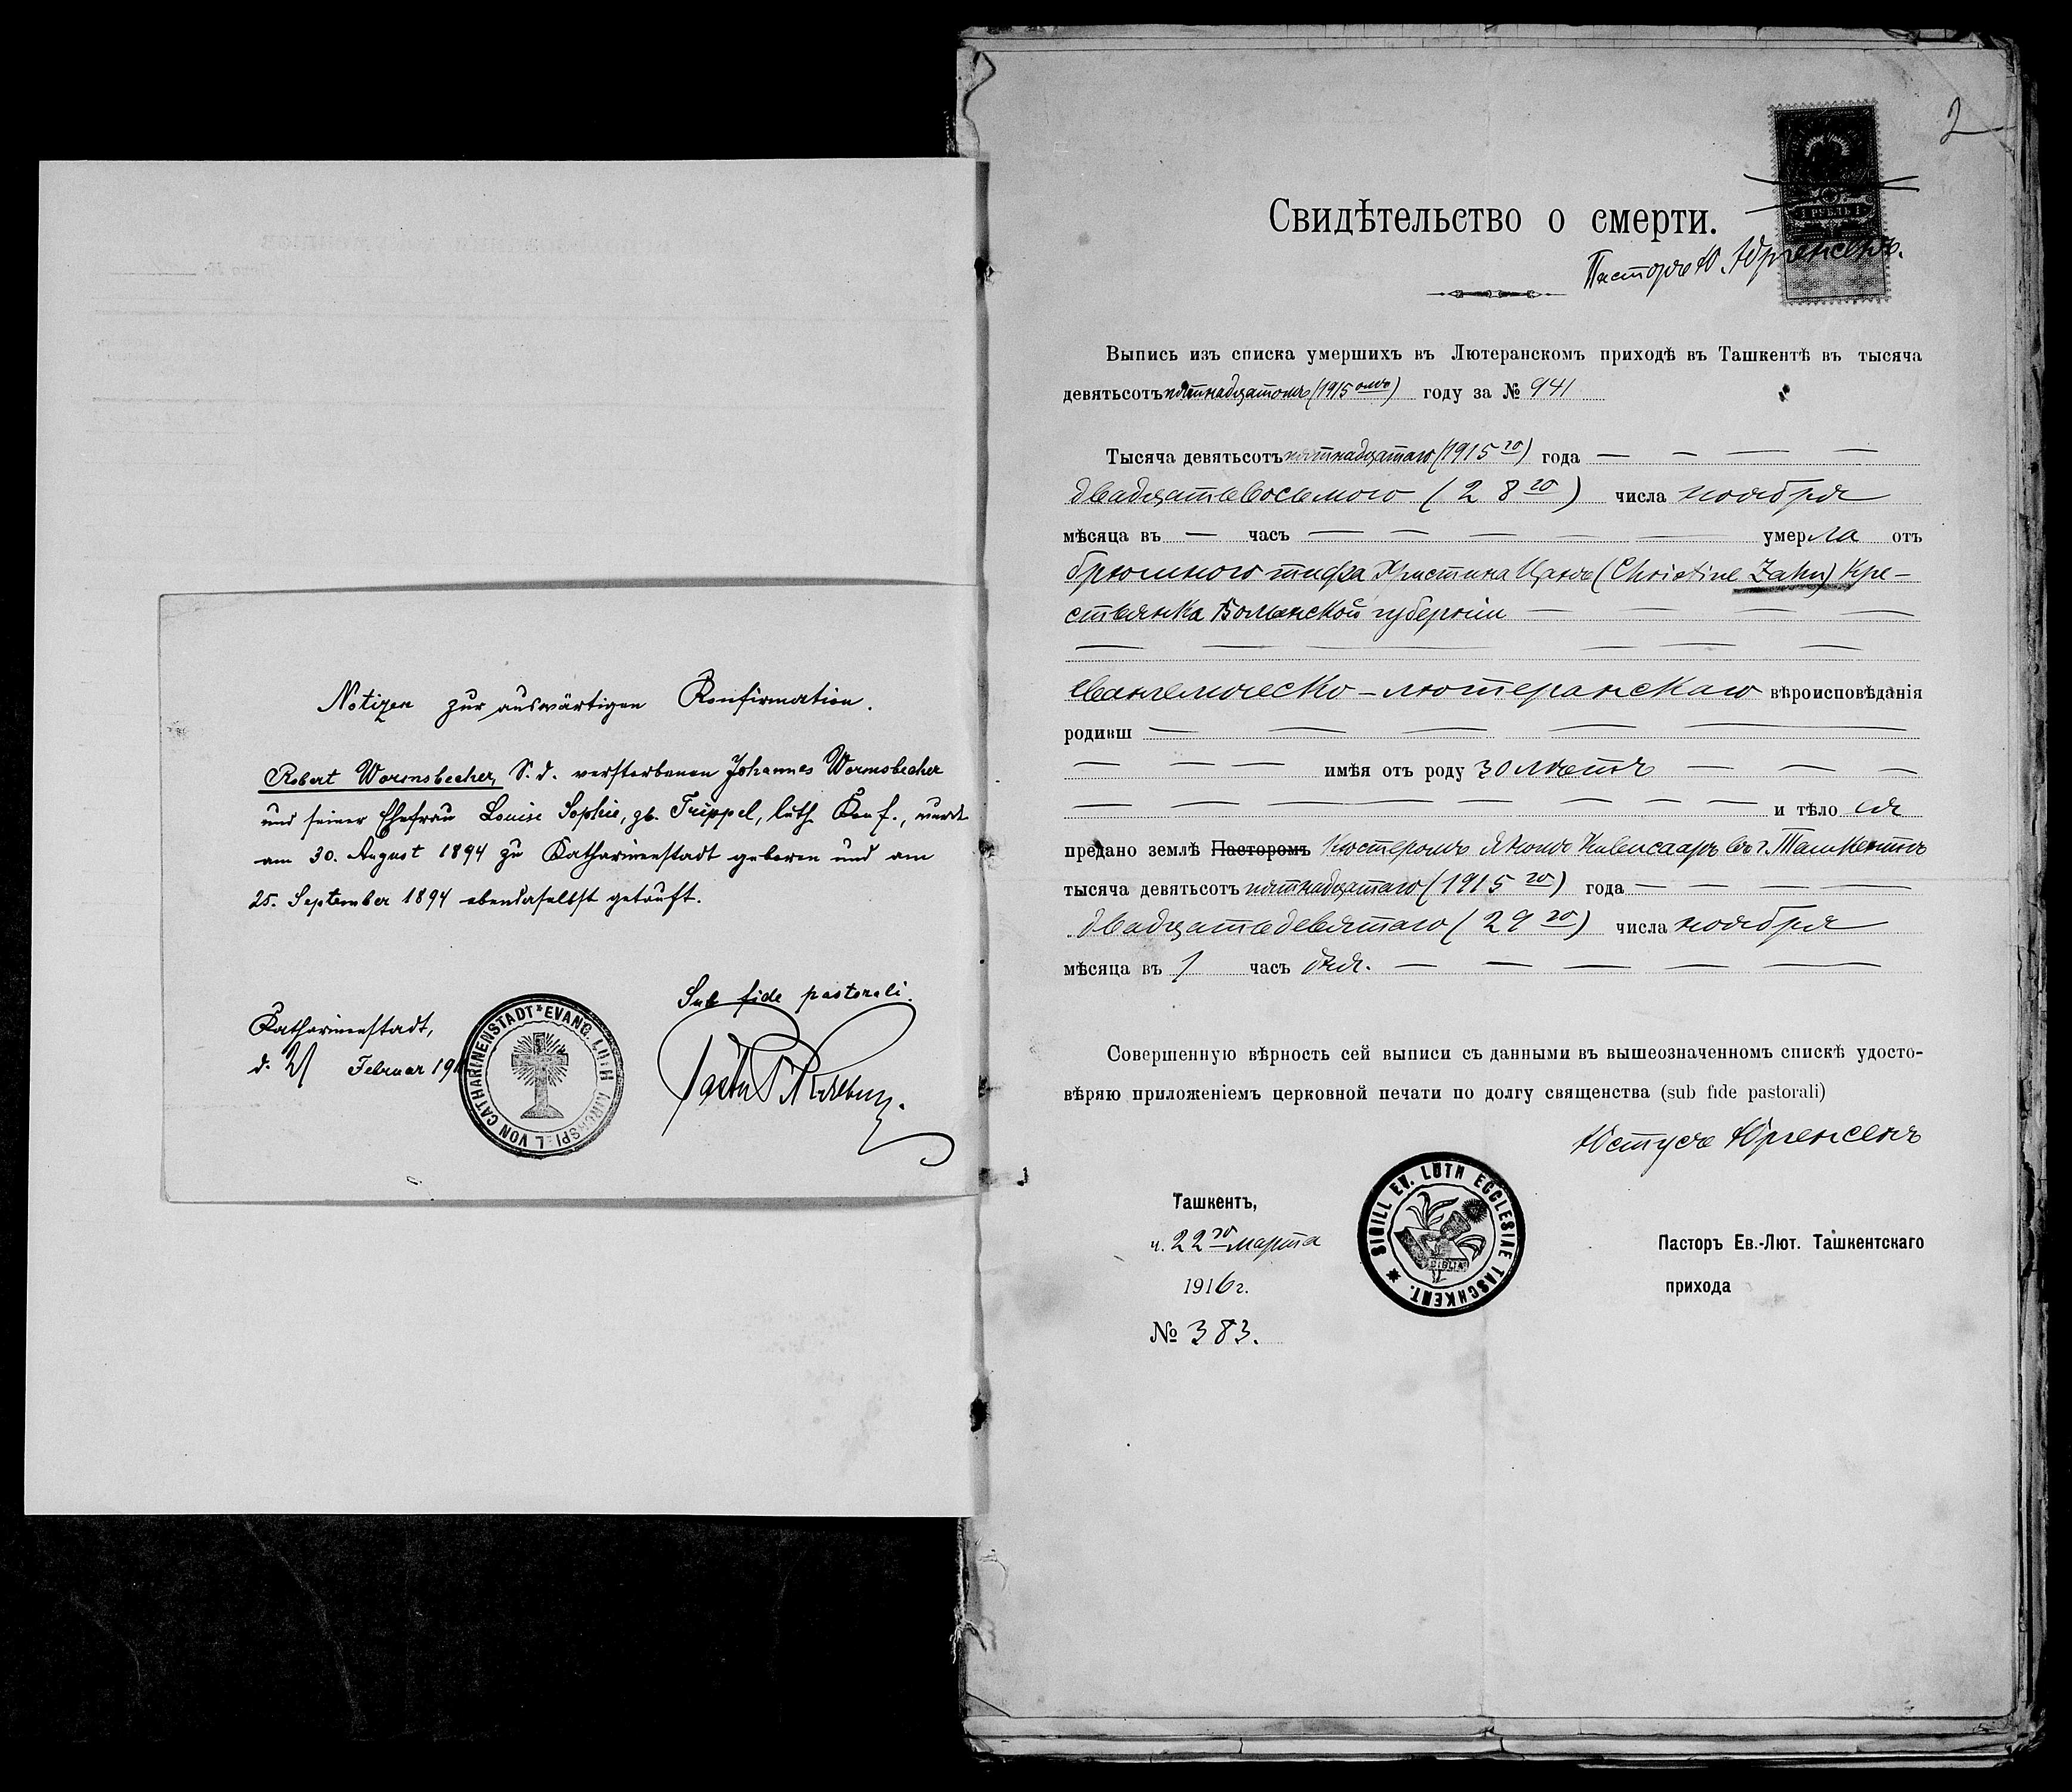 Notizen zur auswärtigen Konfirmation.
Robert Wormsbecher, S. d. verstorbenen Johannes Wormsbecher
und seiner Ehefrau Louise Sophie, gb. Trippel, luth. Konf., wurde
am 30. August 1894 zu Katharinenstadt geboren und am
25. September 1894 ebendaselbst getauft.
Sub fide pastorali.
Katharinenstadt,
d. 21 Februar 191
Pastor
EVANG. LUTH KIRCHSPIEL VON CATHARINENSTADT
2
1 РУБЛЬ 1
Свидѣтельство о смерти.
Пасторъ Ю. Юргенсенъ.
Выпись изъ списка умершихъ въ Лютеранскомъ приходѣ въ Ташкентѣ въ тысяча
девятьсотъ пятнадцатомъ (1915 омъ) году за № 941
Тысяча девятьсотъ пятнадцатаго (1915 го) года — — — —
двадцать восьмого (28 го) числа ноября
мѣсяца въ — часъ — — — — — умерла отъ
брюшного тифа Христина Цанъ (Christine Zahn) кре-
стьянка Волынской губерніи — — — —
евангелическо-лютеранскаго вѣроисповѣданія
родивш — — — — —
— — — имѣя отъ роду 30 лѣтъ — — —
— — — — — — — — и тѣло ея
предано землѣ Пасторомъ Кюстеромъ Якомъ Кивисааръ въ г. Ташкентѣ
тысяча девятьсотъ пятнадцатаго (1915 го) года — — —
двадцать девятаго (29 го) числа ноября
мѣсяца въ 1 часъ дня. — — — — —
Совершенную вѣрность сей выписи съ данными въ вышеозначенномъ спискѣ удосто-
вѣряю приложеніемъ церковной печати по долгу священства (sub fide pastorali)
Юстусъ Юргенсенъ
Ташкентъ,
ч. 22 го марта
1916 г.
№ 383.
SIGILL EV. LUTH ECCLESIAE TASCHKENT.
BIBLIA
Пасторъ Ев.-Лют. Ташкентскаго
прихода